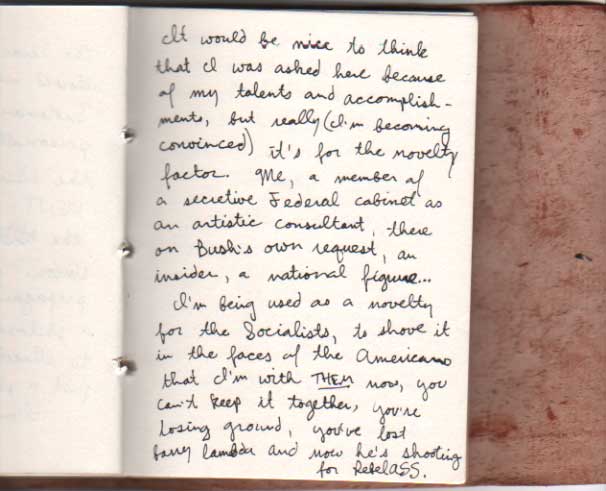 It would be nice to think
that I was asked here because
of my talents and accomplish-
ments, but really (I'm becoming
convinced) it's for the novelty
factor. Me, a member of
a secretive Federal cabinet as
an artistic consultant, there
on Bush's own request, an
insider, a national figure...
I'm being used as a novelty
for the Socialists, to shove it
in the faces of the Americans
that I'm with THEM now, you
can't keep it together, you're
losing ground, you've lost
barry lambda and now he's shooting
for RebelASS.